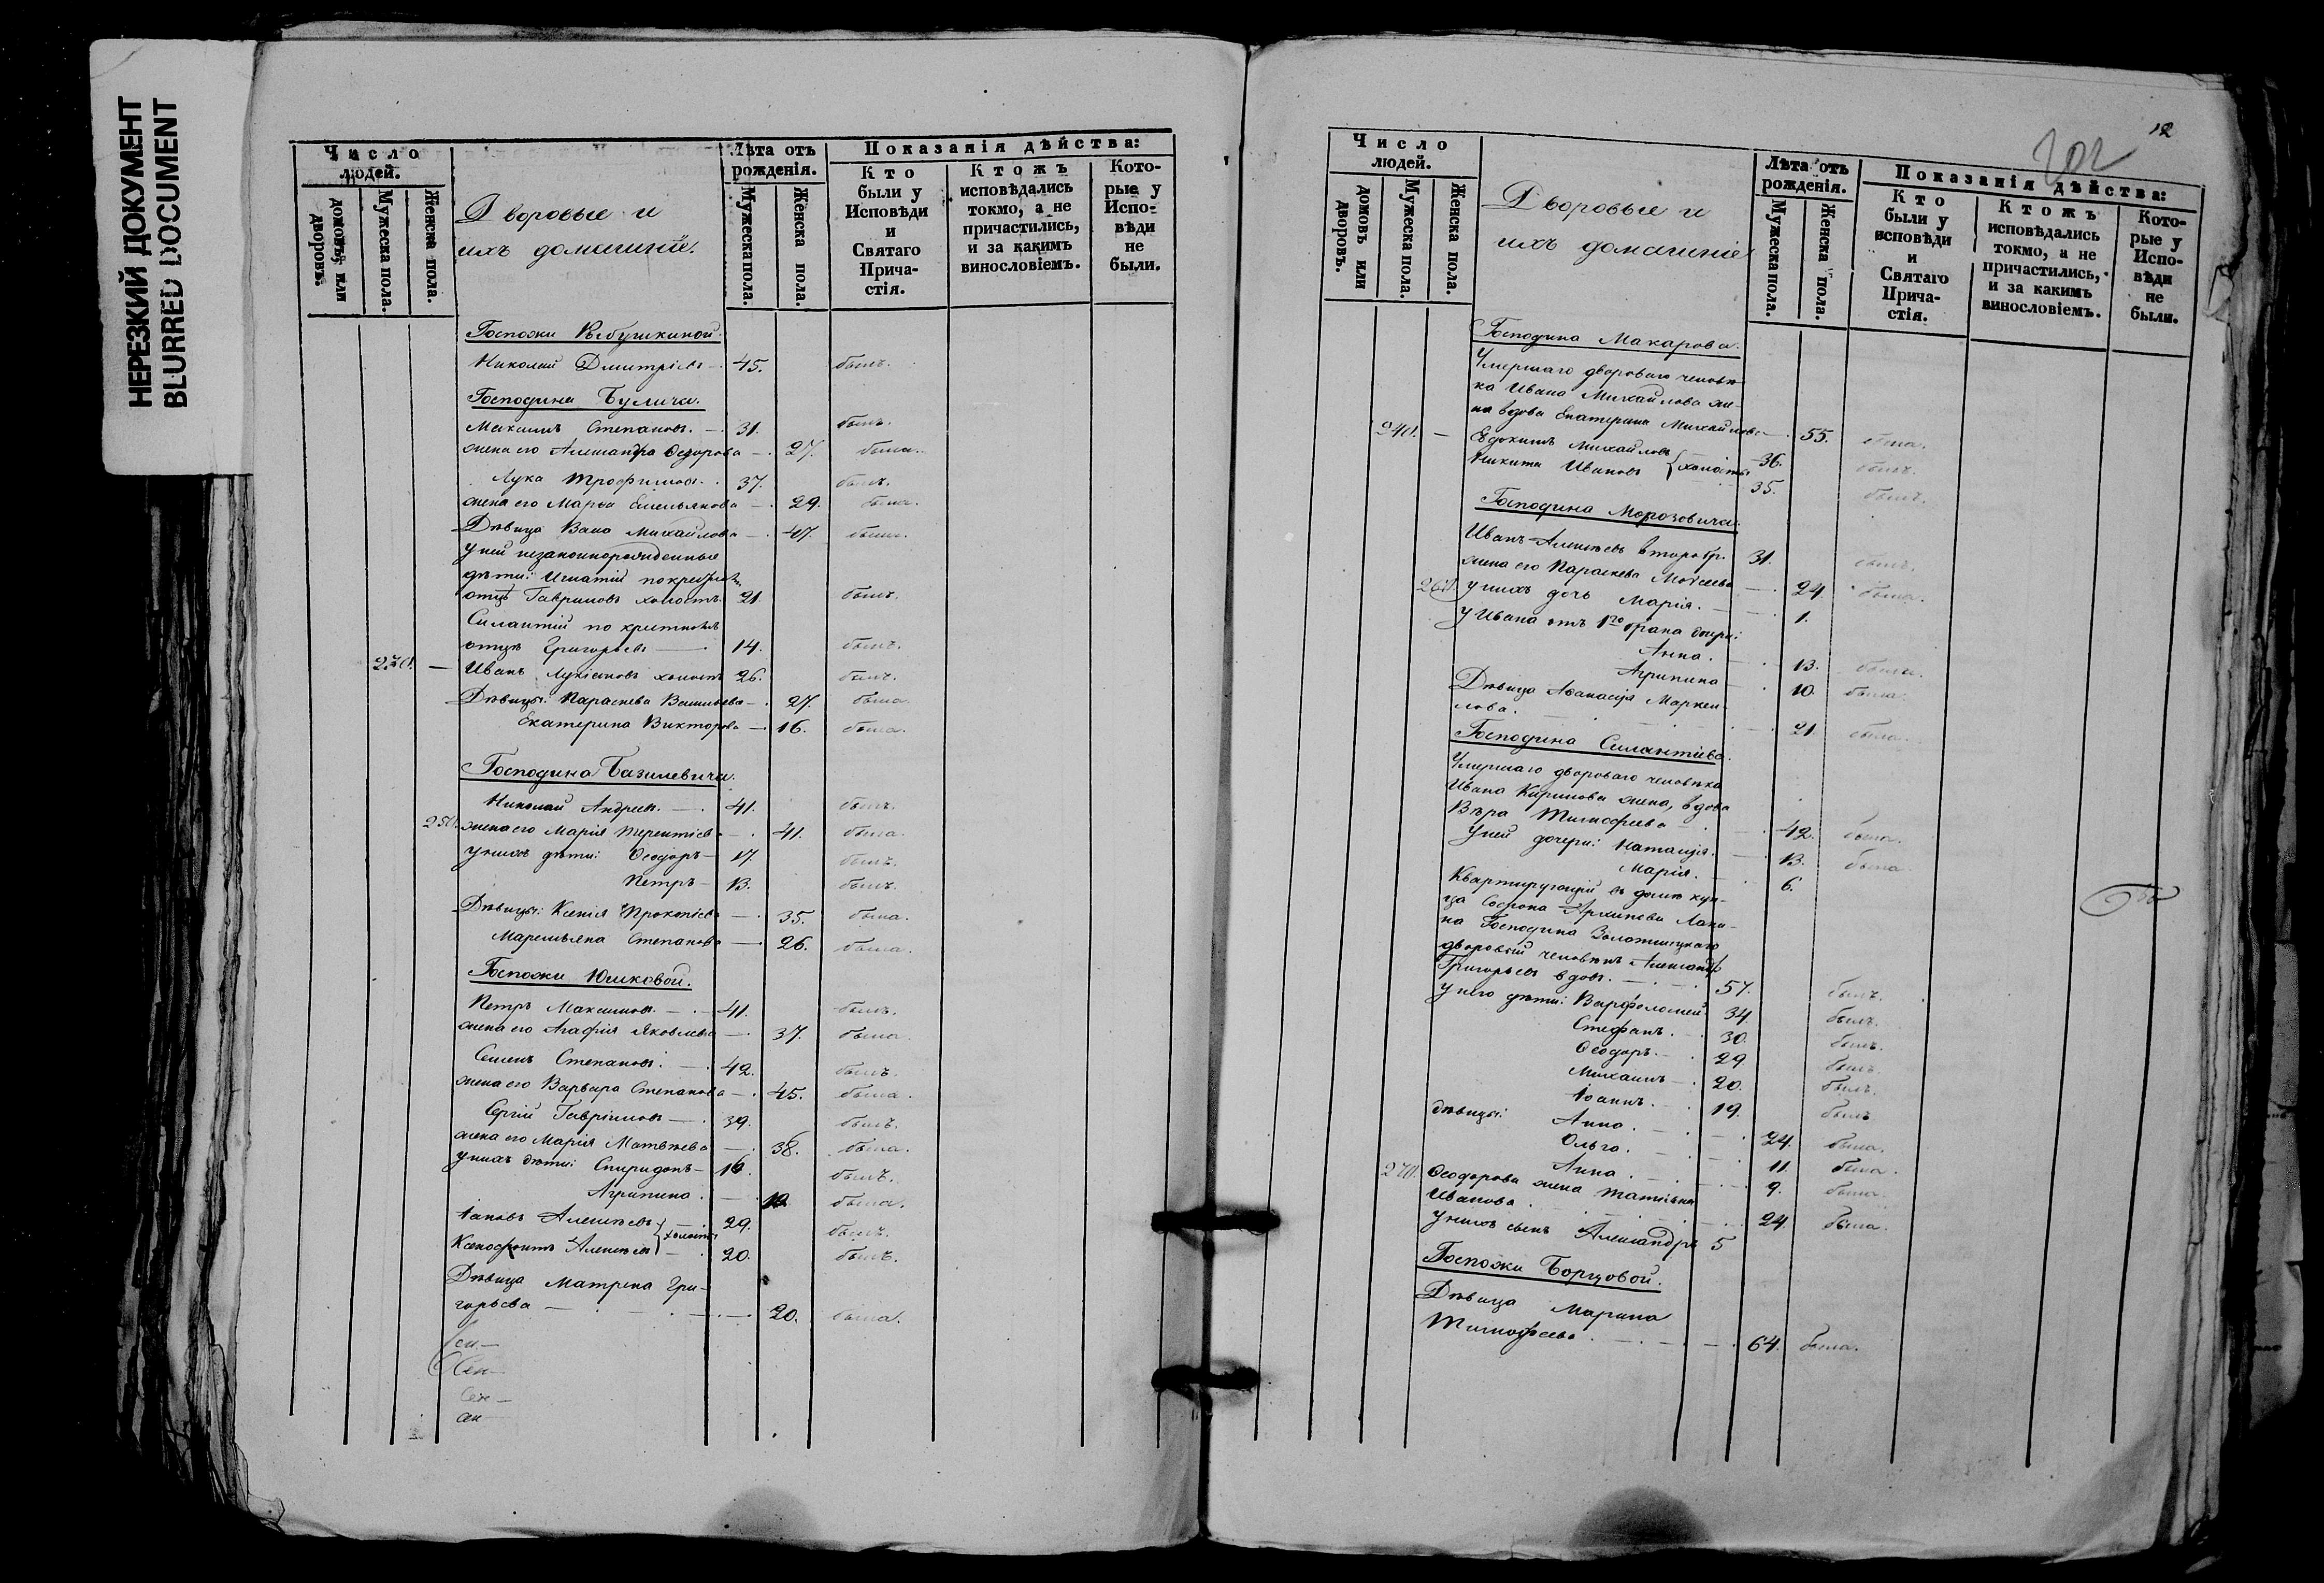 НЕРЕЗКИЙ ДОКУМЕНТ
BLURRED DOCUMENT
Число людей.
домовъ, или дворовъ.
Мужеска пола.
Женска пола.
Дворовые и
ихъ домашніе.
Лѣта отъ рожденія.
Мужеска пола.
Женска пола.
Показанія дѣйства:
Кто были у Исповѣди и Святаго Прича-стія.
Ктожъ исповѣдались токмо, а не причастились, и за какимъ винословіемъ.
Кото-рые у Испо-вѣди не были.
Госпожи
Николай Дмитріевъ — 45. былъ.
Господина Булича.
Максимъ Степановъ. — 31. былъ.
жена его Александра Ѳедорова — 27. была.
Лука Трофимовъ. 37. былъ.
жена его Марья Емельянова — 29. была.
Дѣвица Михайлова — 47. была.
у ней незаконнорожденные
дѣти: Игнатій по крестному
отцу Гавриловъ холостъ. 21. былъ.
Силантій по крестному
отцу Григорьевъ — 14. былъ.
230. — Иванъ Лукіановъ холостъ 26. былъ.
Дѣвицы: Параскева Васильева — 27. была
Екатерина Викторова — 16. была.
Господина Базилевича.
Николай Андреевъ. — 41. былъ.
250. жена его Марія Терентіева — 41. была.
у нихъ дѣти: Ѳеодоръ — 17. былъ.
Петръ — 13. былъ.
Дѣвицы: Ксенія Прокопіева — 35. была.
Маремьяна Степанова — 26. была.
Госпожи Юшковой.
Петръ Максимовъ. — 41. былъ.
жена его Агафія Яковлева — 37. была.
Семенъ Степановъ. — 42. былъ.
жена его Варвара Степанова — 45. была.
Сергій Гавріиловъ — 39. былъ.
жена его Марія Матвѣева — 38. была.
у нихъ дѣти: Спиридонъ — 16. былъ.
Агрипина. — была.
Іаковъ Алексѣевъ 29. былъ.
Ксенофонтъ Алексѣевъ } холосты 20. былъ.
Дѣвица Матрена Гри-
горьева — 20. была.
12
202
Число людей.
домовъ или дворовъ.
Мужеска пола.
Женска пола.
Дворовые и
ихъ домашніе
Лѣта отъ рожденія.
Мужеска пола.
Женска пола.
Показанія дѣйства:
Кто были у исповѣди и Святаго Прича-стія.
Ктожъ исповѣдались токмо, а не причастились, и за какимъ винословіемъ.
Кото-рые у Испо-вѣди не были.
Господина Макарова.
Умершаго двороваго человѣ-
ка Ивана Михайлова же-
на вдова Екатерина Михайлова — 55. была.
240. — Евдокимъ Михайловъ 36. былъ.
Никита Ивановъ } холосты 35. былъ.
Господина Морозовича.
Иванъ Алексѣевъ второбр. 31. былъ.
жена его Параскева Моисеева — 24. была.
260. у нихъ дочь Марія. — 1.
у Ивана отъ 1го брака дочери:
Анна. — 13. была.
Агрипина — 10. была.
Дѣвица Аѳанасія Маркел-
лова. — 21. была.
Господина Силантіева.
Умершаго двороваго человѣка
Ивана Кирилова жена, вдова
Вѣра Тимофеева — 42. была.
У ней дочери: Наталія. — 13. была
Марія. — 6.
Квартирующій въ домѣ куп-
ца Софрона Архипова Лапи-
на Господина Золотницкаго
дворовый человѣкъ Александръ
Григорьевъ вдовъ. — 57. былъ.
у него дѣти: Варфоломей 34 былъ.
Стефанъ. — 30. былъ.
Ѳеодоръ. — 29. былъ.
Михаилъ — 20. былъ.
Іоаннъ. — 19. былъ
дѣвицы: Анна. — 24. была.
Ольга. — 11. была.
Анна. — 9. была.
270. Ѳеодорова жена Татіана
Иванова. — 24. была.
у нихъ сынъ Александръ 5
Госпожи Борцовой.
Дѣвица Марина
Тимофеева. — 64. была.